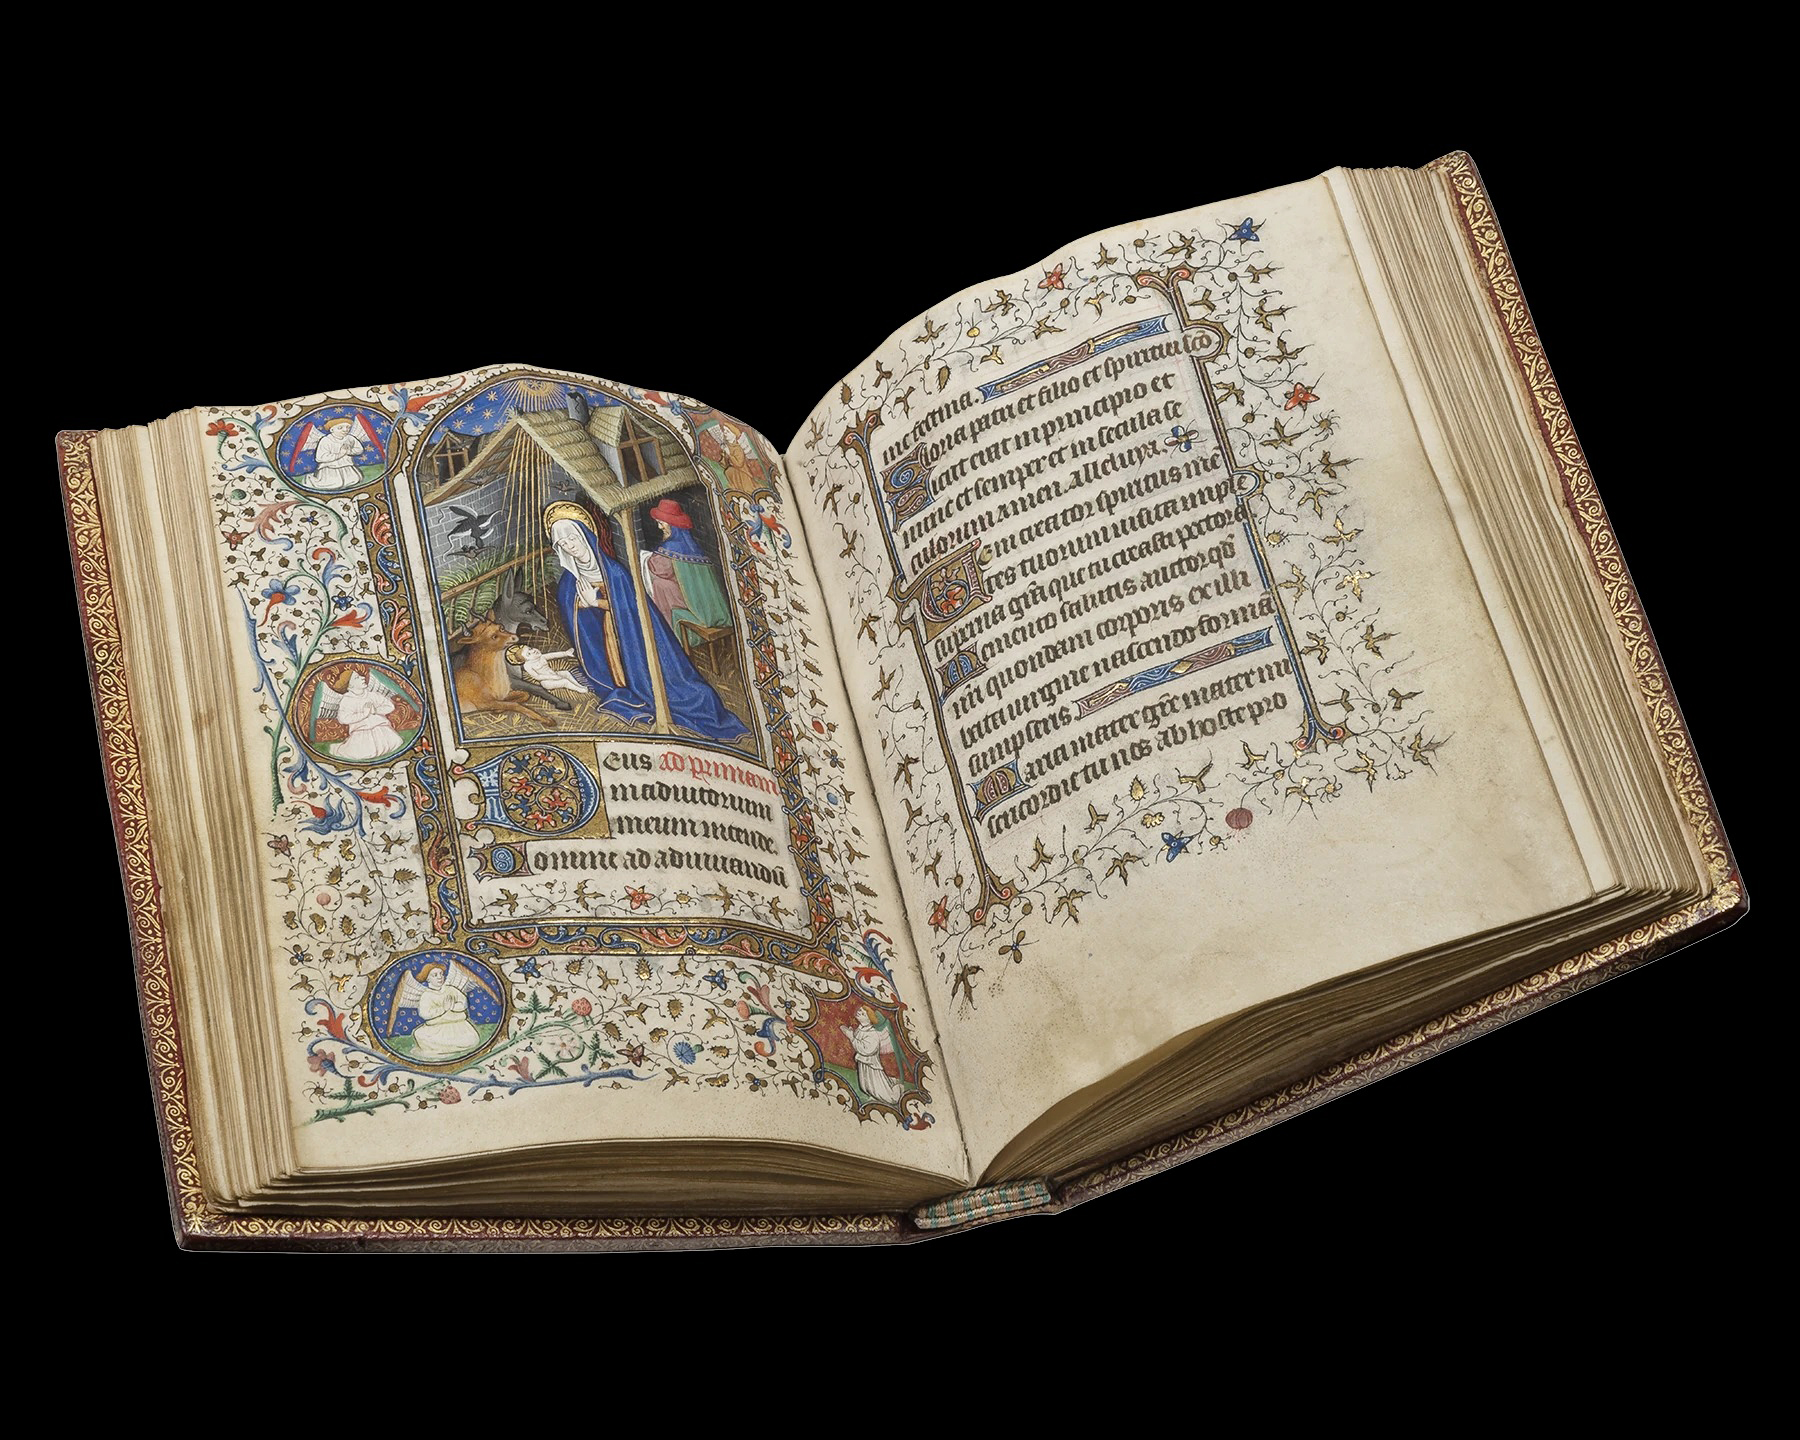 Deus ad primam
in adiutorium
meum intende.
Domine ad adiuuandū
me festina.
Gloria patri et filio et spiritui scō
Sicut erat in principio et
nunc et semper et in secula se
culorum amen. alleluya.
Veni creator spiritus mē
tes tuorum uisita imple
superna grā̄ que tu creasti pectora
Memento salutis auctor qđ
nr̄i quondam corporis ex illi
bata uirgine nascendo formā
sumpseris.
Maria mater grē mater mi
sericordie tu nos ab hoste pro